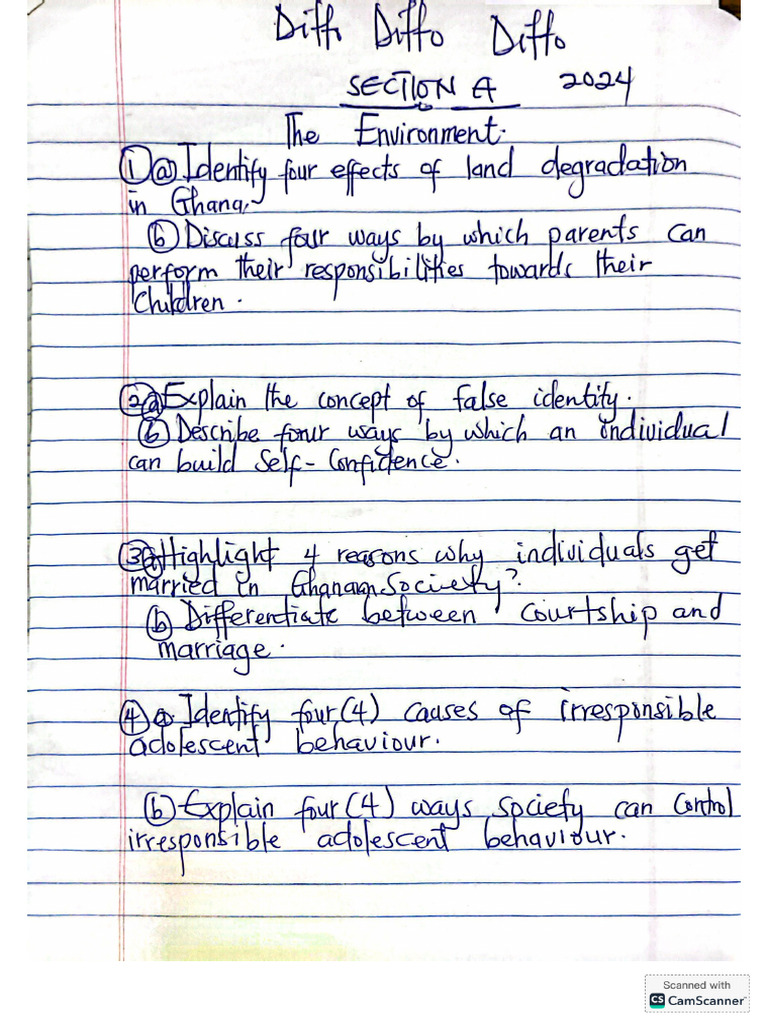 Diffo Diffo Diffo
SECTION A 2024
The Environment.
1 a Identify four effects of land degradation
in Ghana.
b Discuss four ways by which parents can
perform their responsibilities towards their
Children.
2 a Explain the concept of false identity.
b Describe four ways by which an individual
can build Self-Confidence.
3 a Highlight 4 reasons why individuals get
married in Ghanaian Society?
b Differentiate between courtship and
marriage.
4 a Identify four (4) causes of irresponsible
adolescent behaviour.
b Explain four (4) ways society can Control
irresponsible adolescent behaviour.
Scanned with
CS CamScanner